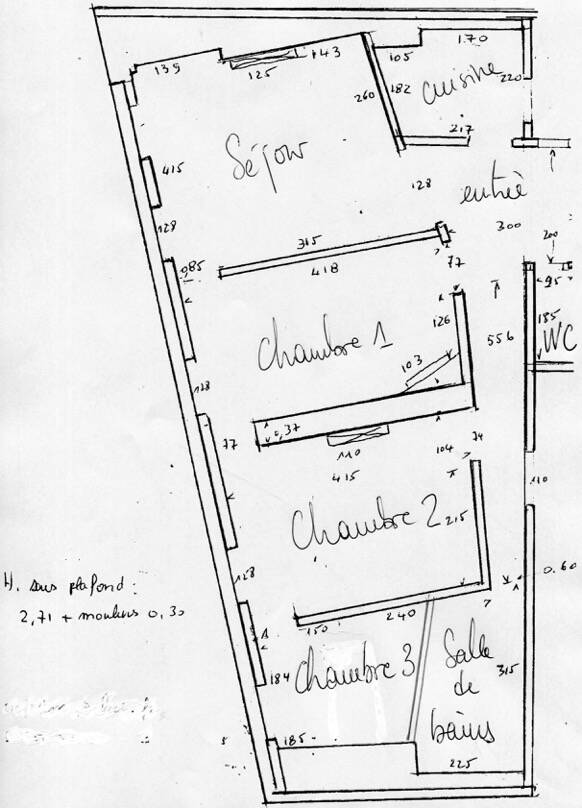 170
139
125
43
105
220
182
260
cuisine
217
Séjour
415
128
entrée
128
315
300
200
085
418
77
95
126
556
185
WC
Chambre 1
103
128
0,37
77
110
104
74
415
110
Chambre 2
215
128
0.60
H. sous plafond :
2,71 + moulures 0,30
150
240
184
Chambre 3
Salle
de
bains
315
185
5
225